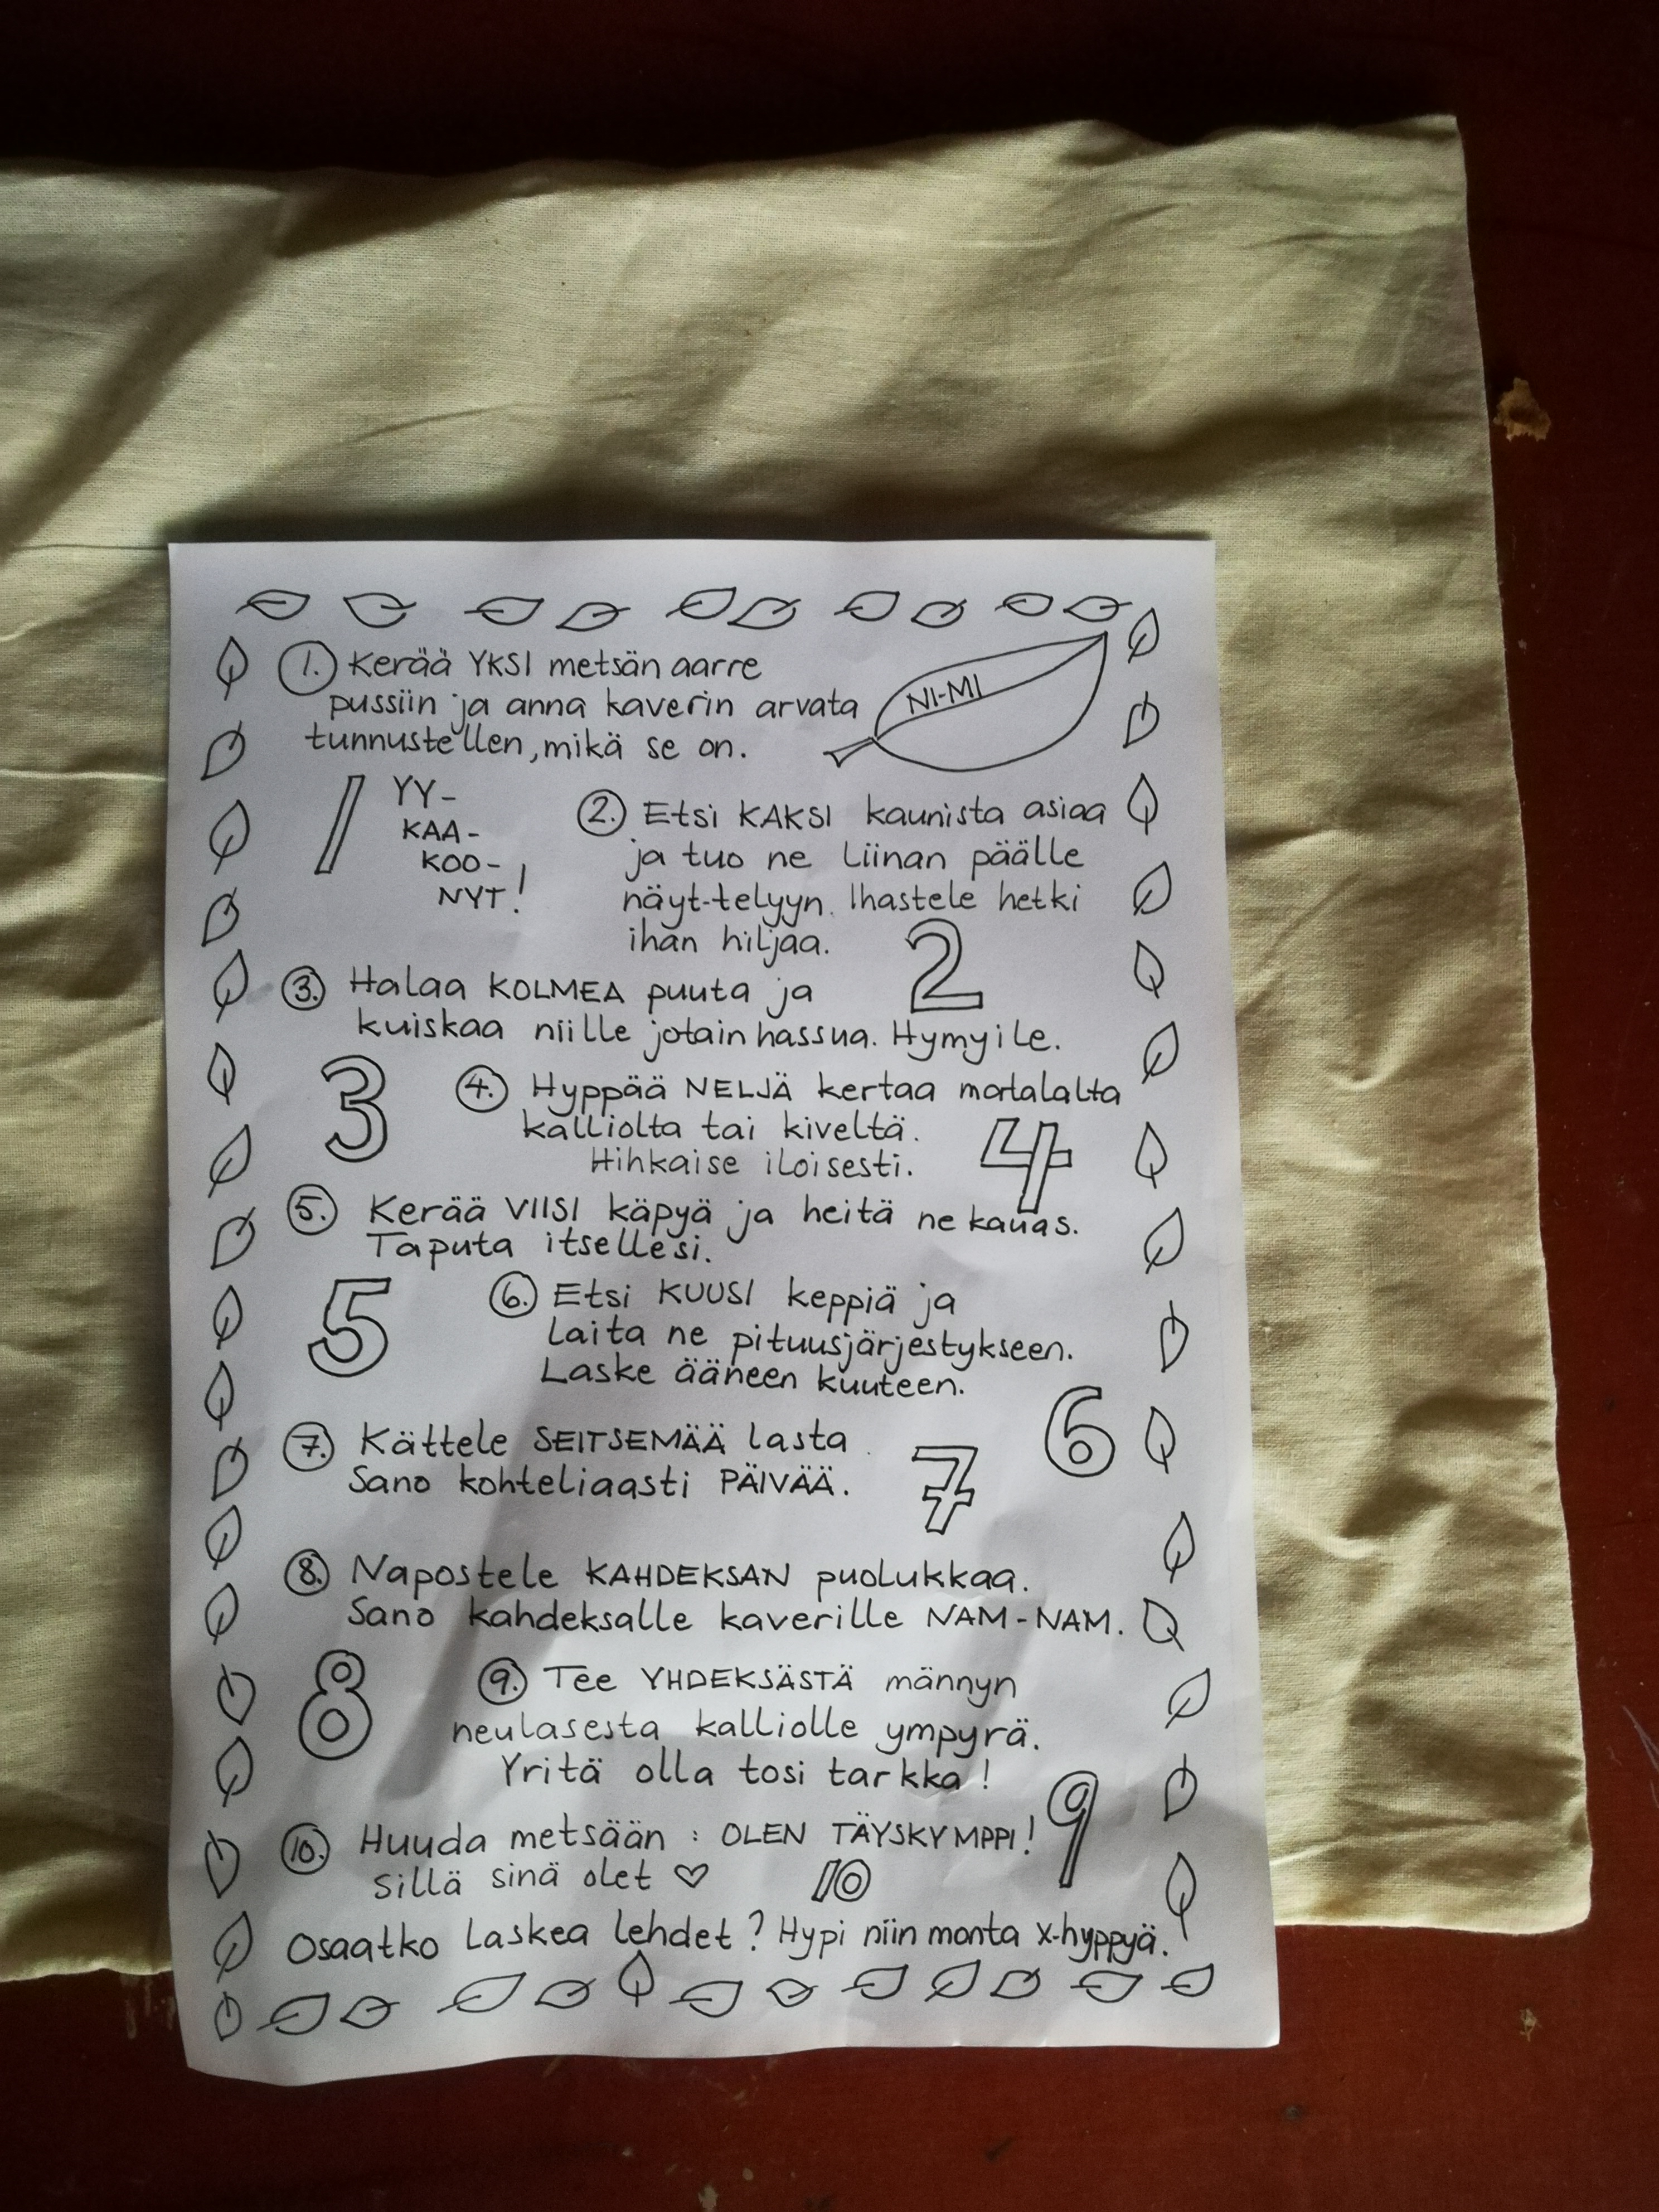 1. Kerää YKSI metsän aarre
pussiin ja anna kaverin arvata
tunnustellen, mikä se on.
NI-MI
1
YY-
KAA-
KOO-
NYT!
2. Etsi KAKSI kaunista asiaa
ja tuo ne liinan päälle
näyt-telyyn. Ihastele hetki
ihan hiljaa.
2
3. Halaa KOLMEA puuta ja
kuiskaa niille jotain hassua. Hymyile.
3
4. Hyppää NELJÄ kertaa matalalta
kalliolta tai kiveltä.
Hihkaise iloisesti.
4
5. Kerää VIISI käpyä ja heitä ne kauas.
Taputa itsellesi.
5
6. Etsi KUUSI keppiä ja
laita ne pituusjärjestykseen.
Laske ääneen kuuteen.
6
7. Kättele SEITSEMÄÄ lasta.
Sano kohteliaasti PÄIVÄÄ.
7
8. Napostele KAHDEKSAN puolukkaa.
Sano kahdeksalle kaverille NAM-NAM.
8
9. Tee YHDEKSÄSTÄ männyn
neulasesta kalliolle ympyrä.
Yritä olla tosi tarkka!
9
10. Huuda metsään : OLEN TÄYSKYMPPI!
Sillä sinä olet ♡
10
Osaatko laskea lehdet? Hypi niin monta x-hyppyä.